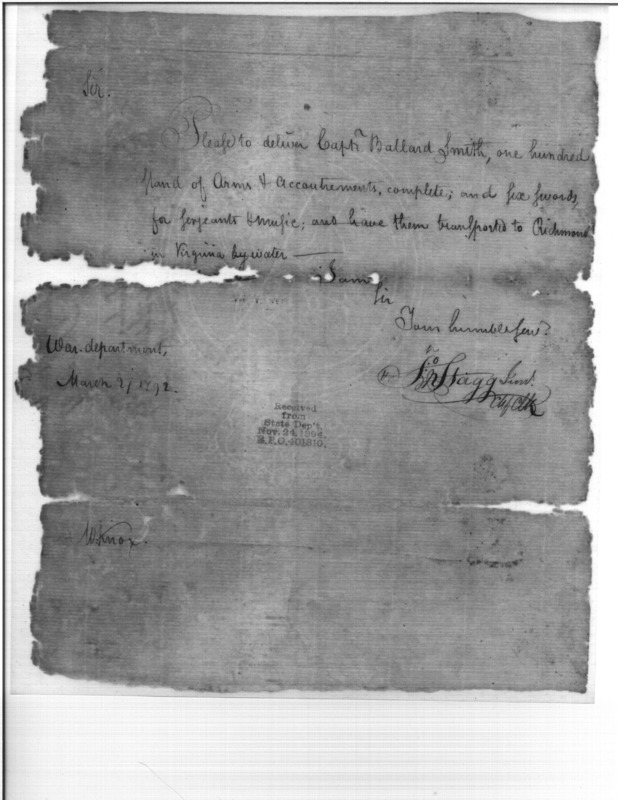 Sir.
Please to deliver Captn Ballard Smith, one hundred
stand of Arms & Accoutrements, complete; and six swords,
for sergeants & music; and have them transported to Richmond
in Virginia by water —
I am
Sir
Your humble Servt
War-department,
March 1792.
Jno Stagg Junr
Chf Clk
Received
from
State Dep't.
Nov. 24, 1894.
R.P.O. 401810.
W Knox.